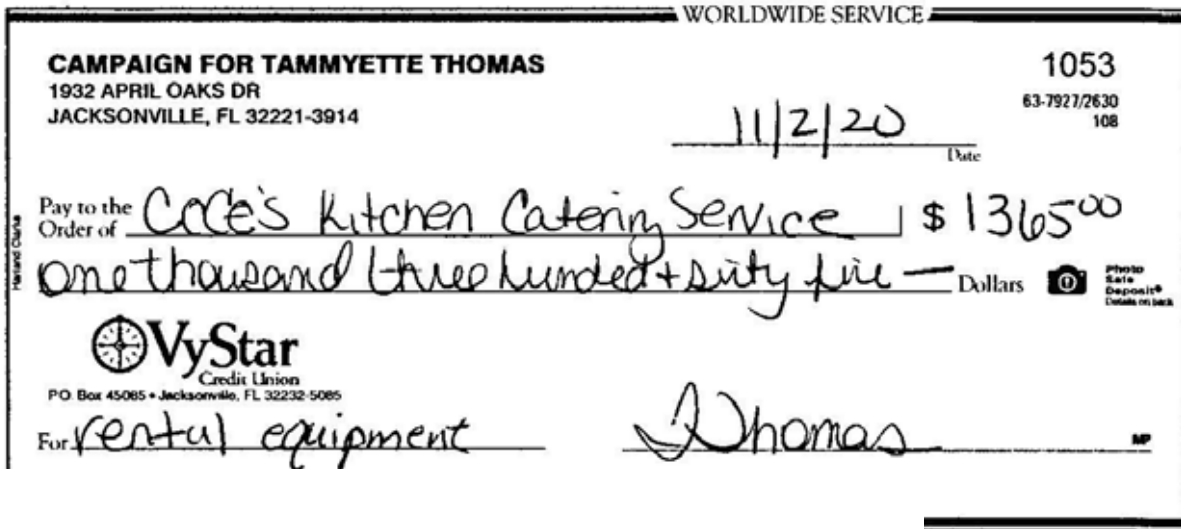 WORLDWIDE SERVICE
CAMPAIGN FOR TAMMYETTE THOMAS
1053
1932 APRIL OAKS DR
63-7927/2630
JACKSONVILLE, FL 32221-3914
108
11/2/20
Date
Pay to the Order of CoCe's Kitchen Catering Service $ 1365 00
one thousand three hundred + sixty five — Dollars
Photo Safe Deposit® Details on back
Harland Clarke
VyStar
Credit Union
P.O. Box 45085 • Jacksonville, FL 32232-5085
For rental equipment
TThomas
MP